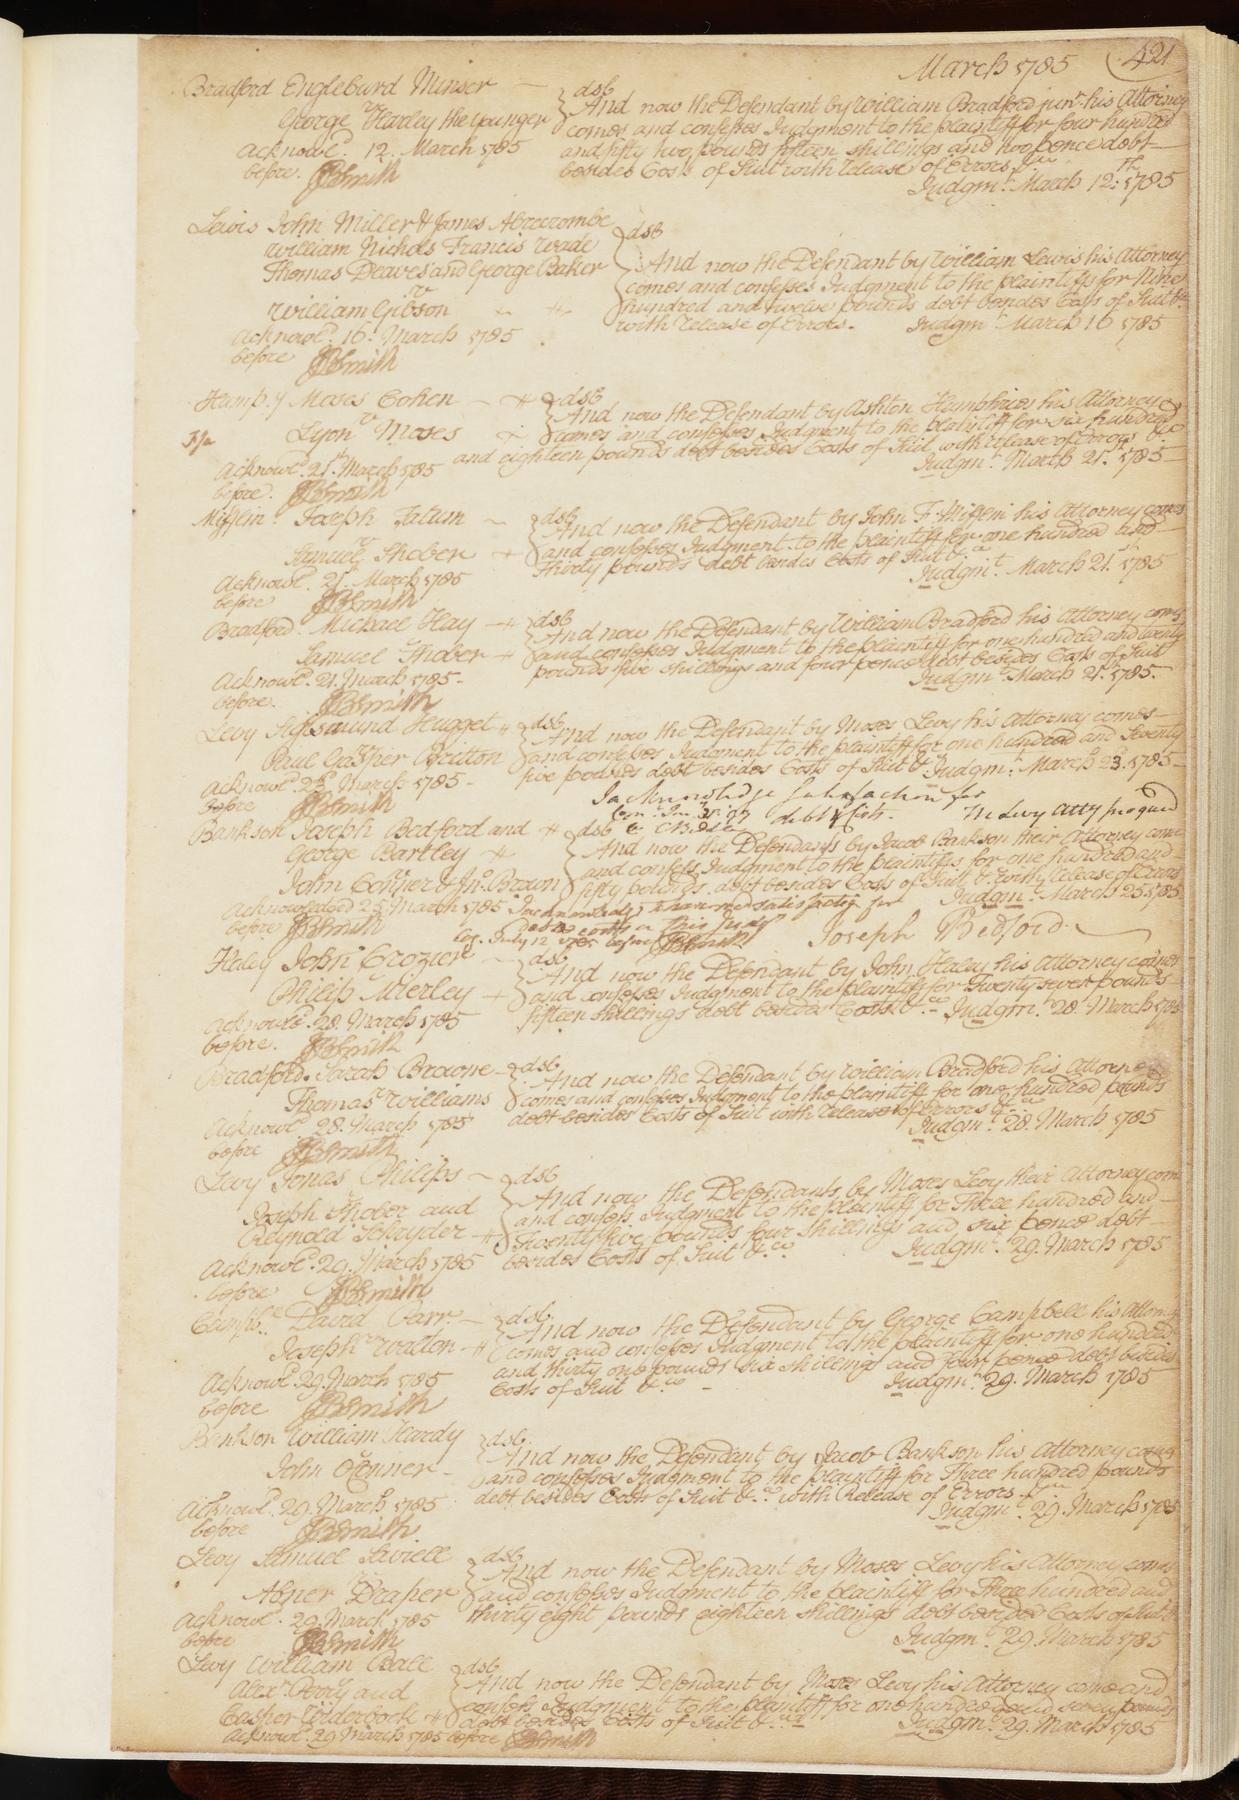 March 1785 421
Bradford Engleburd Minser
v
George Harley the younger
Acknowl.d 12. March 1785
before. JBSmith
dsb
And now the Defendant by William Bradford jun.r his Attorney
comes and confesses Judgment to the plaintiff for four hundred
and fifty two pounds fifteen shillings and two pence debt
besides Costs of Suit with release of Errors &ca
Judgm.t March 12.th 1785
Lewis John Miller & James Abercrombe
William Nichols Francis Wade
Thomas Deaves and George Baker
v
William Gibson
Acknowl.d 16. March 1785
before JBSmith
dsb
And now the Defendant by William Lewis his Attorney
comes and confesses Judgment to the plaintiffs for Nine
hundred and twelve pounds debt besides Costs of Suit &ca
with release of Errors. Judgm.t March 16 1785
Hump.y Moses Cohen
v
Fi fa Lyon Moses
Acknowl.d 21.st March 1785
before. JBSmith
dsb
And now the Defendant by Ashton Humphries his Attorney
comes and confesses Judgment to the plaintiff for six hundred
and eighteen pounds debt besides Costs of Suit with release of Errors &ca
Judgm.t March 21.st 1785
Mifflin. Joseph Tatum
v
Samuel Shober
Acknowl.d 21. March 1785
before JBSmith
dsb
And now the Defendant by John F. Mifflin his Attorney comes
and confesses Judgment to the plaintiff for one hundred and
thirty pounds debt besides Costs of Suit &ca
Judgm.t March 21.st 1785
Bradford. Michael Hay
Samuel Shober
Acknowl.d 21. March 1785
before. JBSmith
dsb
And now the Defendant by William Bradford his Attorney comes
and confesses Judgment to the plaintiff for one hundred and twenty
pounds five shillings and four pence debt besides Costs of Suit
Judgm.t March 21.st 1785.
Levy Sigismund Hugget
v
Paul Gasper Britton
Acknowl.d 23.d March 1785
before JBSmith
dsb
And now the Defendant by Moses Levy his Attorney comes
and confesses Judgment to the plaintiff for one hundred and Seventy
five pounds debt besides Costs of Suit &c Judgm.t March 23. 1785
I acknowledge satisfaction for
debt & Costs. M Levy Atty pro quer
Bankson Joseph Bedford and
George Bartley
v
John Conner & Jn.o Brown
Acknowledged 25. March 1785
before JBSmith
dsb
And now the Defendants by Jacob Bankson their Attorney come
and confess Judgment to the plaintiffs for one hundred and
fifty pounds debt besides Costs of Suit & with release of Errors
Judgm.t March 25. 1785
I acknowledge to have rec.d satisfaction for
debt & costs in this Judgt
July 12 1785 before JBSmith Joseph Bedford.
Haley John Crozier
v
Philip Mierley
Acknowl.d 28. March 1785
before. JBSmith
dsb
And now the Defendant by John Haley his Attorney comes
and confesses Judgment to the plaintiff for Twenty seven pounds
fifteen shillings debt besides Costs &ca Judgm.t 28. March 1785
Bradford. Sarah Browne
v
Thomas Williams
Acknowl.d 28. March 1785
before JBSmith
dsb
And now the Defendant by William Bradford his Attorney
comes and confesses Judgment to the plaintiff for one hundred pounds
debt besides Costs of Suit with release of Errors &ca
Judgm.t 28. March 1785
Levy Jonas Philips
v
Joseph Shober and
Reynold Schryder
Acknowl.d 29. March 1785
before JBSmith
dsb
And now the Defendants by Moses Levy their Attorney come
and confess Judgment to the plaintiff for Three hundred and
Twenty five pounds four shillings and six pence debt
besides Costs of Suit &.ca Judgm.t 29. March 1785
Campb.ll David Carr.
v
Joseph Walton
Acknowl.d 29. March 1785
before JBSmith
dsb
And now the Defendant by George Campbell his Attorney
comes and confesses Judgment to the plaintiff for one hundred
and thirty one pounds six shillings and four pence debt besides
Costs of Suit &.ca Judgm.t 29. March 1785
Bankson William Hardy
John Conner
Acknowl.d 29. March 1785
before JBSmith
dsb.
And now the Defendant by Jacob Bankson his Attorney comes
and confesses Judgment to the plaintiff for Three hundred pounds
debt besides Costs of Suit &.ca with Release of Errors
Judgm.t 29. March 1785
Levy Samuel Saviell
v
Abner Draper
Acknowl.d 29. March 1785
before JBSmith
dsb
And now the Defendant by Moses Levy his Attorney comes
and confesses Judgment to the plaintiff for Three hundred and
thirty eight pounds eighteen shillings debt besides Costs of Suit &
Judgm.t 29. March 1785
Levy William Ball
v
Alex.r Perry and
Casper
Acknowl.d 29 March 1785 before JBSmith
dsb
And now the Defendant by Moses Levy his Attorney come and
confess Judgment to the plaintiff for one hundred and seven pounds
debt besides Costs of Suit &ca Judgm.t 29. March 1785